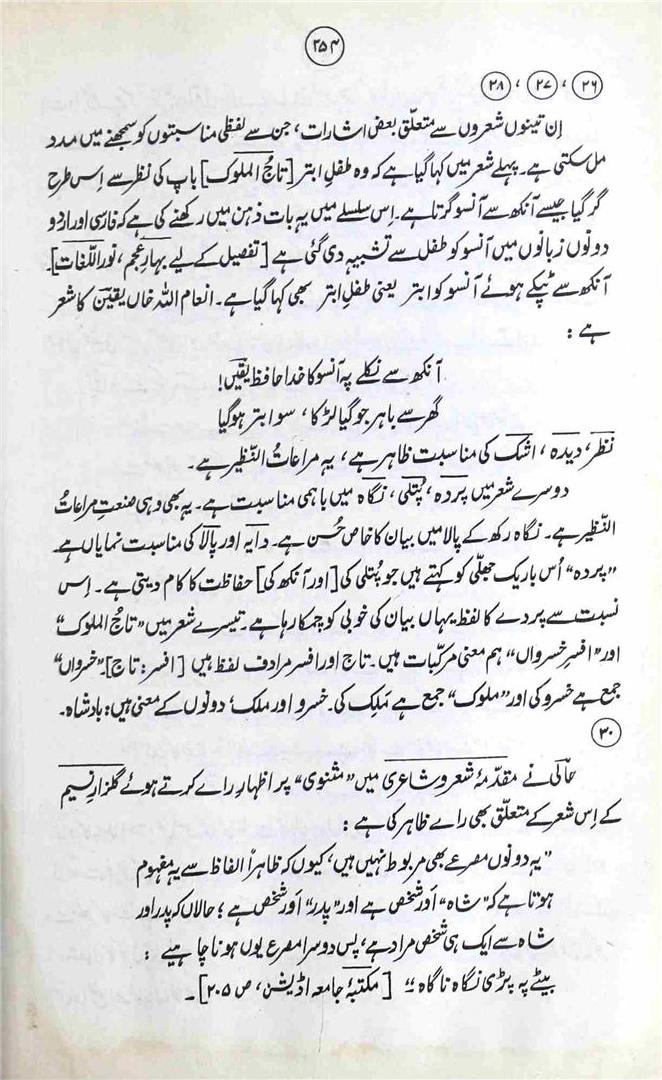 ۲۵۴
۲۶ ، ۲۷ ، ۲۸
اِن تینوں شعروں سے متعلّق بعض اشارات ، جن سے لفظی مناسبتوں کو سمجھنے میں مدد
مل سکتی ہے۔ پہلے شعر میں کہا گیا ہے کہ وہ طفلِ ابتر [تاجُ الملوک] باپ کی نظر سے اِس طرح
گر گیا جیسے آنکھ سے آنسو گرتا ہے۔ اِس سلسلے میں یہ بات ذہن میں رکھنے کی ہے کہ فارسی اور اردو
دونوں زبانوں میں آنسو کو طفل سے تشبیہ دی گئی ہے [تفصیل کے لیے بہارِ عجم ، نور اللّغات]۔
آنکھ سے ٹپکے ہوئے آنسو کو ابتر یعنی طفلِ ابتر بھی کہا گیا ہے۔ انعام اللہ خاں یقینؔ کا شعر
ہے :
آنکھ سے نکلے پہ آنسو کا خدا حافظ یقیںؔ!
گھر سے باہر جو گیا لڑکا ، سو ابتر ہو گیا
نظر ، دیدہ ، اشک کی مناسبت ظاہر ہے ، یہ مراعاتُ النّظیر ہے۔
دوسرے شعر میں پردہ ، پُتلی ، نگاہ میں باہمی مناسبت ہے۔ یہ بھی وہی صنعتِ مراعاتُ
النّظیر ہے۔ نگاہ رکھ کے پالا میں بیان کا خاص حُسن ہے۔ دایہ اور پالا کی مناسبت نمایاں ہے۔
”پردہ“ اُس باریک جھلّی کو کہتے ہیں جو پُتلی کی [اور آنکھ کی] حفاظت کا کام دیتی ہے۔ اِس
نسبت سے پردے کا لفظ یہاں بیان کی خوبی کو چمکا رہا ہے۔ تیسرے شعر میں ”تاجُ الملوک“
اور ”افسرِ خسرواں“ ہم معنی مرکّبات ہیں۔ تاج اور افسر مرادف لفظ ہیں [افسر : تاج]۔ ”خسرواں“
جمع ہے خسرو کی اور ”ملوک“ جمع ہے مَلِک کی۔ خسرو اور ملک ، دونوں کے معنی ہیں : بادشاہ۔
۳۰
حالیؔ نے مقدّمۂ شعر و شاعری میں ”مثنوی“ پر اظہارِ راے کرتے ہوئے گلزارِ نسیم
کے اِس شعر کے متعلّق بھی راے ظاہر کی ہے :
”یہ دونوں مصرعے بھی مربوط نہیں ہیں ، کیوں کہ ظاہراً الفاظ سے یہ مفہوم
ہوتا ہے کہ ”شاہ“ اَور شخص ہے اور ”پدر“ اَور شخص ہے ؛ حالاں کہ پدر اور
شاہ سے ایک ہی شخص مراد ہے ، پس دوسرا مصرع یوں ہونا چاہیے :
بیٹے پہ پڑی نگاہ ناگاہ“۔ [مکتبۂ جامعہ اڈیشن ، ص ۲۰۵]۔